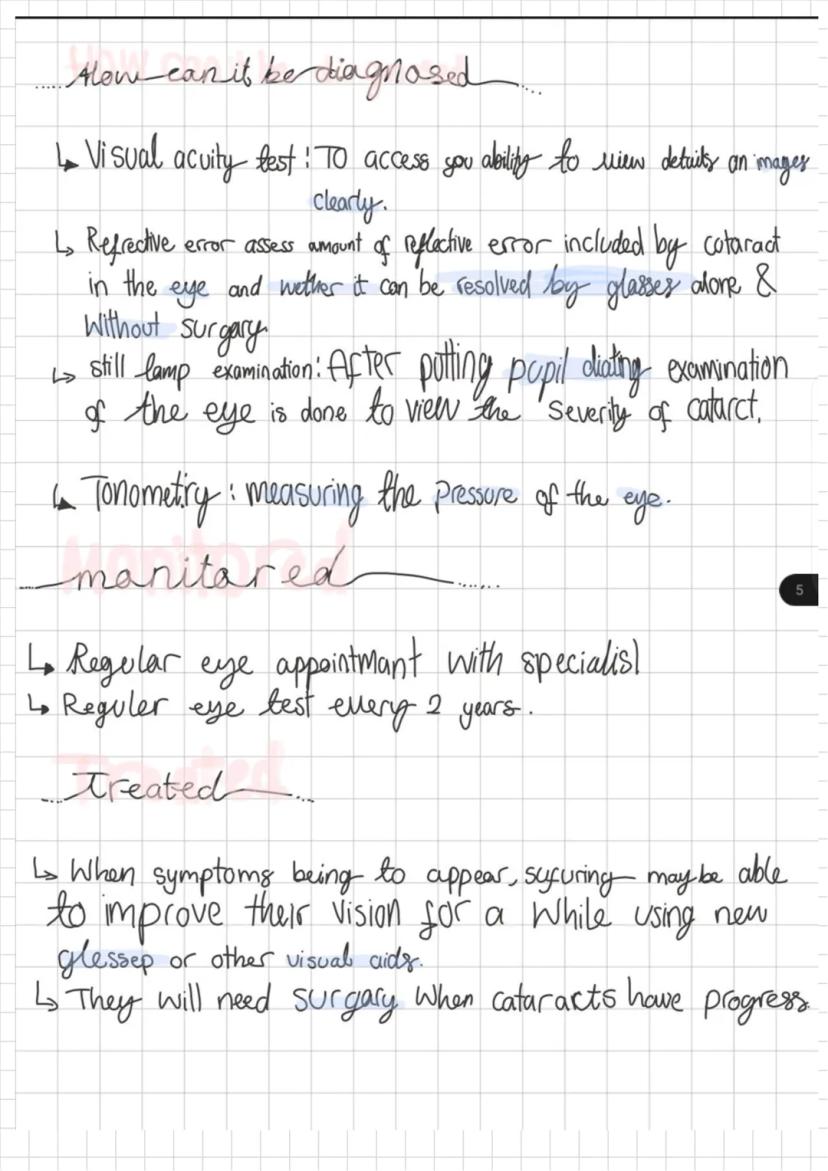 How can it be diagnosed
↳ Visual acuity test : To access you ability to view details an images
clearly.
↳ Refrective error assess amount of reflective error included by cataract
in the eye and wether it can be resolved by glasses alone &
Without surgary
↳ still lamp examination : After putting pupil diating examination
of the eye is done to view the severity of catarct.
↳ Tonometiry : measuring the Pressure of the eye.
manitored
↳ Regular eye appointmant with specialist
↳ Reguler eye test every 2 years.
Treated
↳ When symptoms being to appear, sufuring may be able
to improve their vision for a while using new
glesses or other visual aids.
↳ They will need surgary When cataracts have progress
5